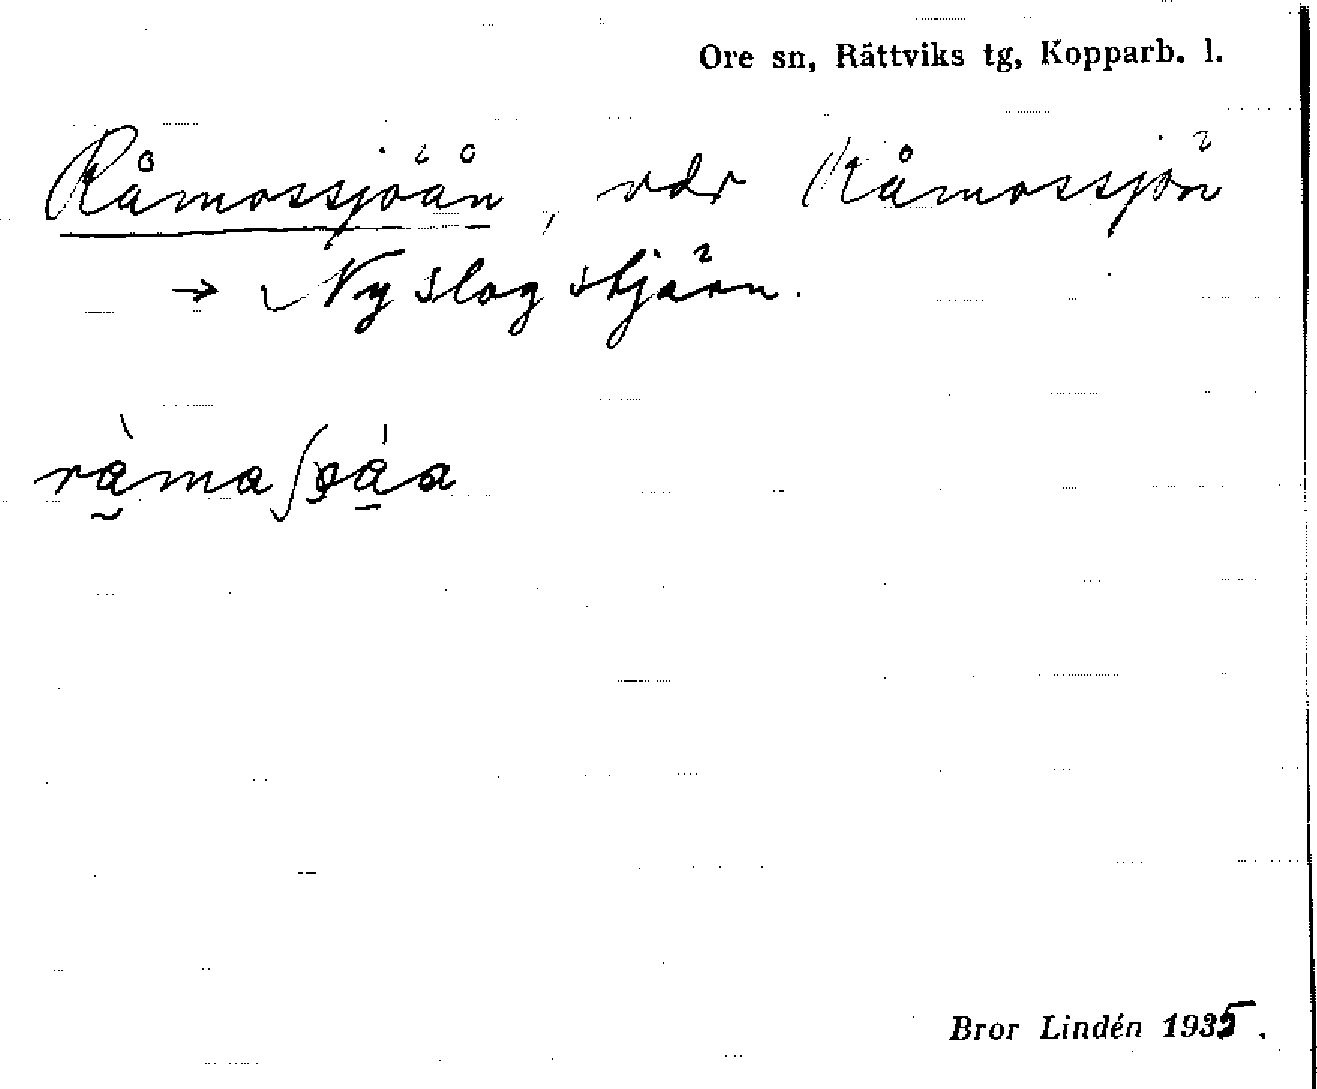 Ore sn, Rättviks tg, Kopparb. l.
Råmossjöån, vdr Råmossjön
→ Nyslogstjärn.
Bror Lindén 1935.